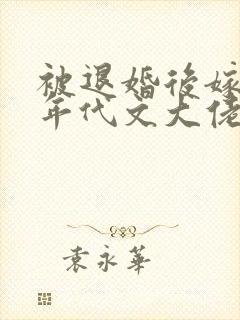 被退婚後嫁
年代文大佬
袁永華